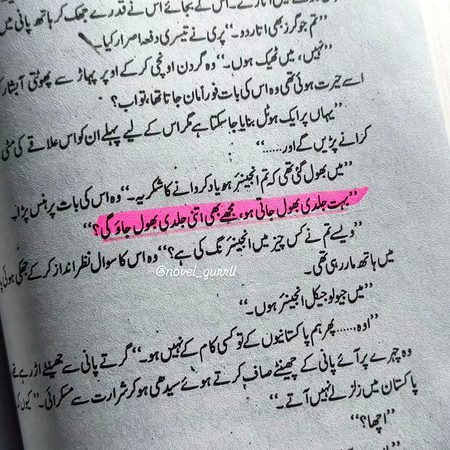 اس کے بجائے اس نے قدرے جھک کر ہاتھ پانی میں
”تم جوگرز بھی اتار دو۔“ پری نے تیسری دفعہ اصرار کیا۔
”نہیں، میں ٹھیک ہوں۔“ وہ گردن اونچی کر کے اوپر پہاڑ سے پھوٹتی آبشار
اسے حیرت ہوئی تھی وہ اس کی بات فوراً مان جاتا تھا، تو اب؟
”یہاں پر ایک ہوٹل بنایا جا سکتا ہے مگر اس کے لیے پہلے ان کو اس علاقے کی مٹی
کرانے پڑیں گے اور......“
”میں بھول گئی تھی کہ تم انجینئر ہو یاد کروانے کا شکریہ۔“ وہ اس کی بات پر ہنس پڑا۔
”بہت جلدی بھول جاتی ہو، مجھے بھی اتنی جلدی بھول جاؤ گی؟“
”ویسے تم نے کس چیز میں انجینئرنگ کی ہے؟“ وہ اس کا سوال نظر انداز کر کے جھکی ہوئی
میں ہاتھ مار رہی تھی۔
@novel_gurrll
”میں جیولوجیکل انجینئر ہوں۔“
”اوہ...... پھر ہم پاکستانیوں کے تو کسی کام کے نہیں ہو۔“ گرتے پانی سے چھینٹے اڑ رہے
وہ چہرے پر آئے پانی کے چھینٹے صاف کرتے ہوئے سیدھی ہو کر شرارت سے مسکرائی۔
پاکستان میں زلزلے نہیں آتے۔“
”اچھا؟“